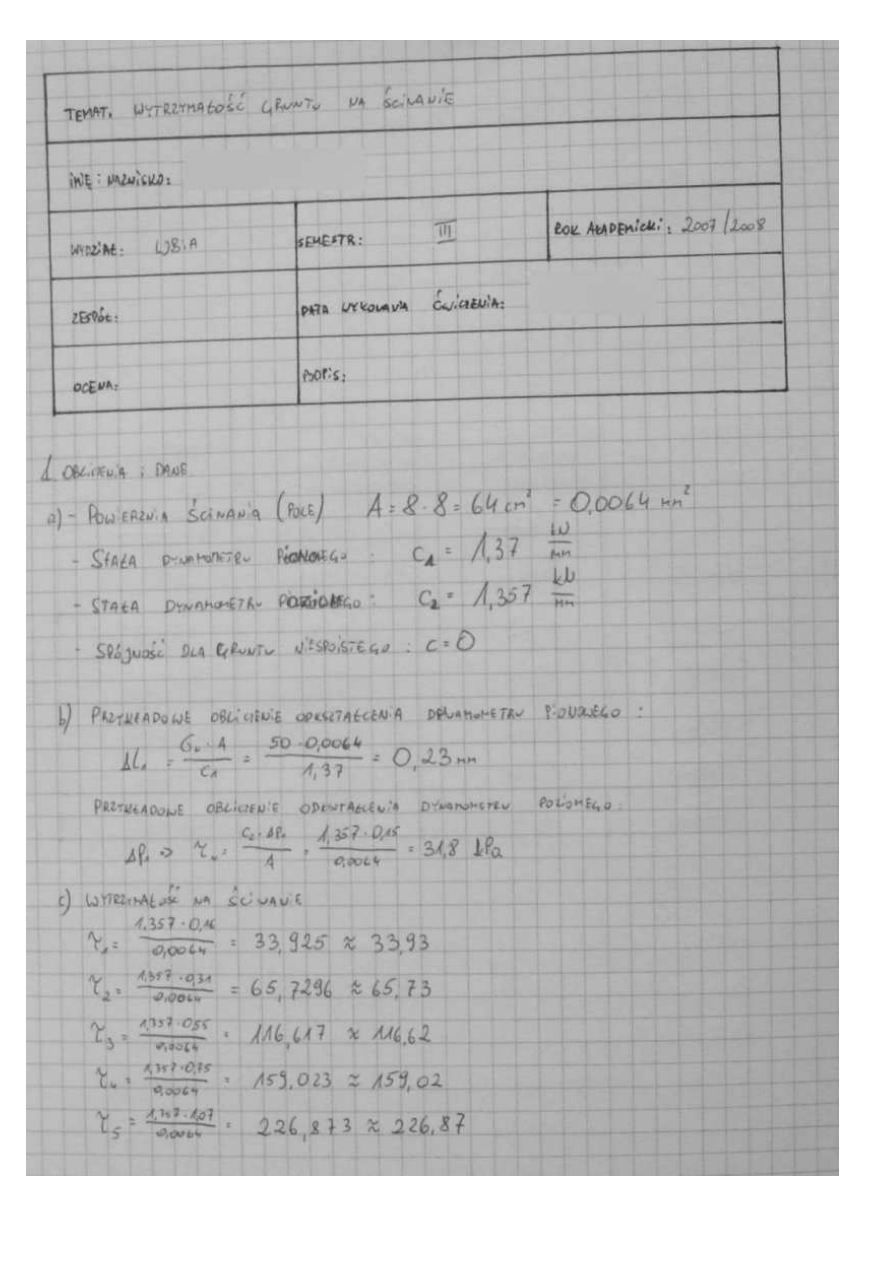 TEMAT: WYTRZYMAŁOŚĆ GRUNTU NA ŚCINANIE
IMIĘ i NAZWISKO:
WYDZIAŁ: WBiA
SEMESTR: III
ROK AKADEMICKI: 2007/2008
ZESPÓŁ:
DATA WYKONANIA ĆWICZENIA:
OCENA:
PODPIS:
1. OBLICZENIA i DANE
a) - POWIERZNIA ŚCINANIA (POLE) A = 8 · 8 = 64 cm² = 0,0064 mm²
- STAŁA DYNAMOMETRU PIONOWEGO : C₁ = 1,37 kN/mm
- STAŁA DYNAMOMETRU POZIOMEGO : C₂ = 1,357 kN/mm
- SPÓJNOŚĆ DLA GRUNTU NIESPOISTEGO : C = 0
b) PRZYKŁADOWE OBLICZENIE ODKSZTAŁCENIA DYNAMOMETRU PIONOWEGO :
ΔL₁ = σₙ · A / C₁ = 50 · 0,0064 / 1,37 = 0,23 mm
PRZYKŁADOWE OBLICZENIE ODKSZTAŁCENIA DYNAMOMETRU POZIOMEGO
ΔP₁ => = 1,357 · 0,15 / 0,0064 = 31,8 kPa
c) WYTRZYMAŁOŚĆ NA ŚCINANIE
τ₁ = 1,357 · 0,16 / 0,0064 = 33,925 ≈ 33,93
τ₂ = 1,357 · 0,31 / 0,0064 = 65,7296 ≈ 65,73
τ₃ = 1,357 · 0,55 / 0,0064 = 116,617 ≈ 116,62
τ₄ = 1,357 · 0,75 / 0,0064 = 159,023 ≈ 159,02
τ₅ = 1,357 · 1,07 / 0,0064 = 226,873 ≈ 226,87